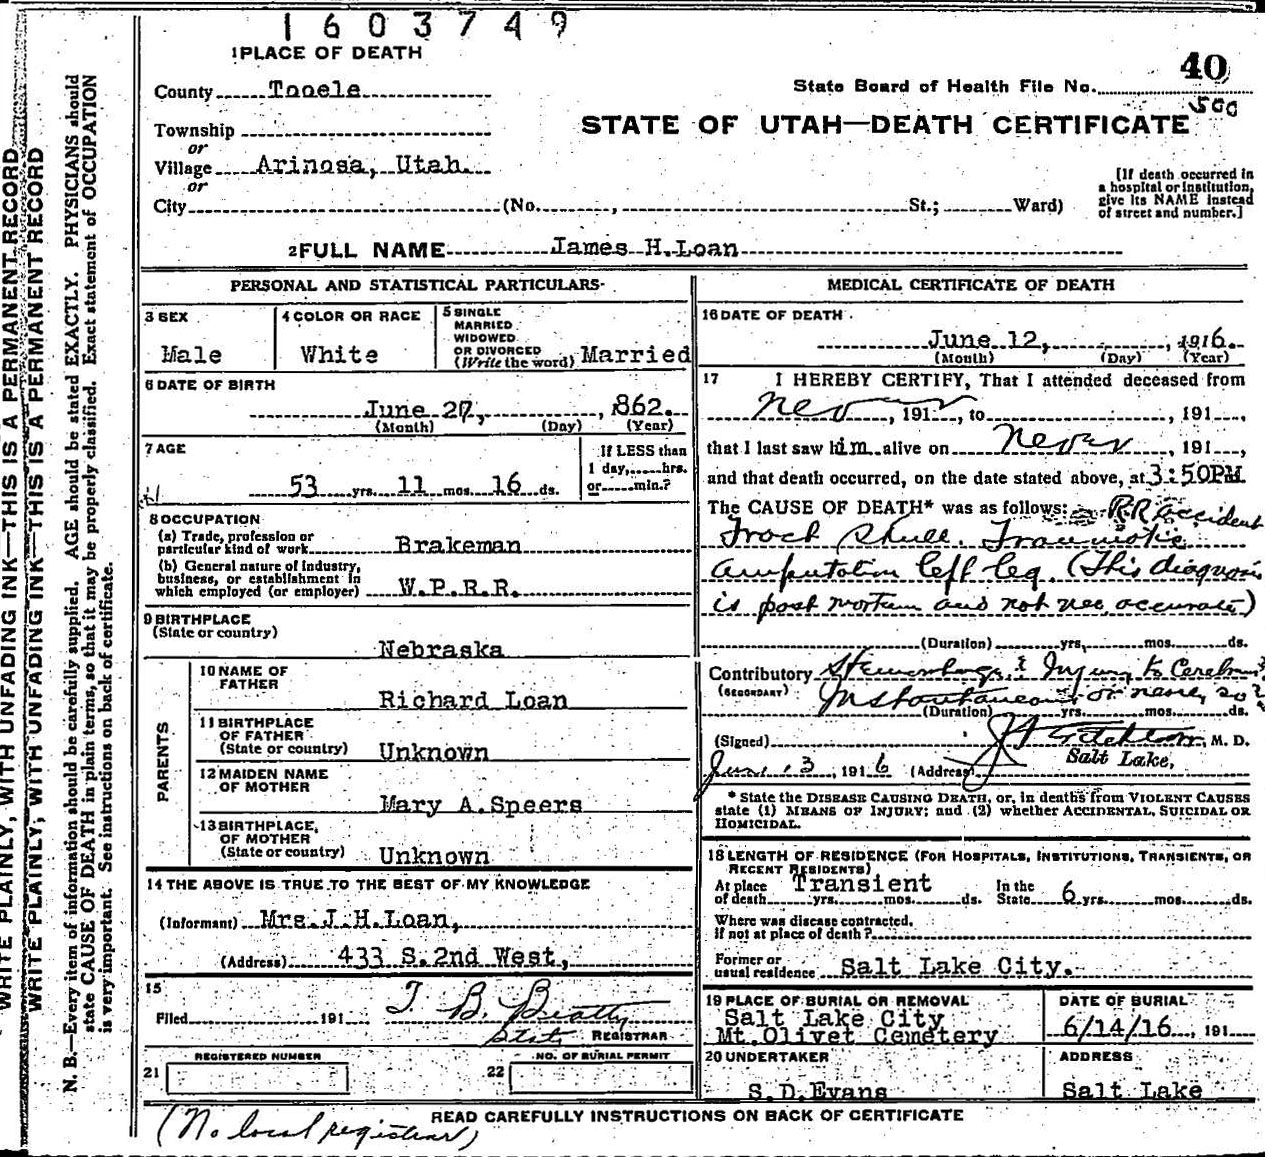 1603749
1 PLACE OF DEATH
40
County Tooele
State Board of Health File No.
500
Township
STATE OF UTAH—DEATH CERTIFICATE
or
Village Arinosa, Utah.
or
[If death occurred in
a hospital or institution,
give its NAME instead
of street and number.]
City (No. , St.; Ward)
2 FULL NAME James H. Loan
PERSONAL AND STATISTICAL PARTICULARS
3 SEX
Male
4 COLOR OR RACE
White
5 SINGLE
MARRIED
WIDOWED
OR DIVORCED
(Write the word) Married
6 DATE OF BIRTH
June 27, , 862.
(Month) (Day) (Year)
7 AGE
53 yrs. 11 mos. 16 ds.
If LESS than
1 day, hrs.
or min.?
8 OCCUPATION
(a) Trade, profession or
particular kind of work Brakeman
(b) General nature of industry,
business, or establishment in
which employed (or employer) W.P.R.R.
9 BIRTHPLACE
(State or country)
Nebraska
PARENTS
10 NAME OF
FATHER
Richard Loan
11 BIRTHPLACE
OF FATHER
(State or country) Unknown
12 MAIDEN NAME
OF MOTHER
Mary A. Speers
13 BIRTHPLACE
OF MOTHER
(State or country) Unknown
14 THE ABOVE IS TRUE TO THE BEST OF MY KNOWLEDGE
(Informant) Mrs. J. H. Loan,
(Address) 433 S. 2nd West,
15
Filed 191 T. B. Beatty
State REGISTRAR
REGISTERED NUMBER
21
NO. OF BURIAL PERMIT
22
MEDICAL CERTIFICATE OF DEATH
16 DATE OF DEATH
June 12, , 1916.
(Month) (Day) (Year)
17 I HEREBY CERTIFY, That I attended deceased from
Never, 191 , to , 191 ,
that I last saw him alive on Never, 191 ,
and that death occurred, on the date stated above, at 3:50PM
The CAUSE OF DEATH* was as follows: RR accident
Fract Skull. Traumatic
amputation left leg. (This diagnosis
is post mortem and not nec accurate)
(Duration) yrs. mos. ds.
Contributory Hemorrhage & Injury to Cerebrum
(SECONDARY) Instantaneous or nearly so
(Duration) yrs. mos. ds.
(Signed) M. D.
June 13, 1916 (Address) Salt Lake,
* State the DISEASE CAUSING DEATH, or, in deaths from VIOLENT CAUSES
state (1) MEANS OF INJURY; and (2) whether ACCIDENTAL, SUICIDAL OR
HOMICIDAL.
18 LENGTH OF RESIDENCE (FOR HOSPITALS, INSTITUTIONS, TRANSIENTS, OR
RECENT RESIDENTS)
At place Transient In the
of death yrs. mos. ds. State 6 yrs. mos. ds.
Where was disease contracted,
If not at place of death?
Former or
usual residence Salt Lake City.
19 PLACE OF BURIAL OR REMOVAL
Salt Lake City
Mt. Olivet Cemetery
DATE OF BURIAL
6/14/16 , 191
20 UNDERTAKER
S. D. Evans
ADDRESS
Salt Lake
READ CAREFULLY INSTRUCTIONS ON BACK OF CERTIFICATE
(No local registrar)
WRITE PLAINLY, WITH UNFADING INK—THIS IS A PERMANENT RECORD
WRITE PLAINLY, WITH UNFADING INK—THIS IS A PERMANENT RECORD
N. B.—Every item of information should be carefully supplied. AGE should be stated EXACTLY. PHYSICIANS should
state CAUSE OF DEATH in plain terms, so that it may be properly classified. Exact statement of OCCUPATION
is very important. See instructions on back of certificate.